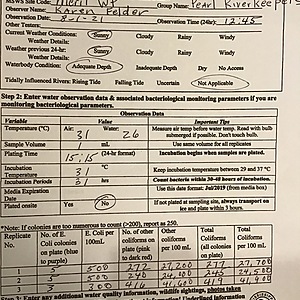 MSWS Site Code: Merit WP Group Name: Pearl Riverkeepers
Observer Name: Karen Felder
Observation Date: 8-1-21 Observation Time (24hr): 12:45
Other Testers:
Current Weather Conditions: Sunny Cloudy Rainy Windy
Weather Details:
Weather previous 24-hr: Sunny Cloudy Rainy Windy
Weather Details:
Waterbody Condition: Adequate Depth Inadequate Depth Dry No Access
Tidally Influenced Rivers: Rising Tide Falling Tide Uncertain Not Applicable
Step 2: Enter water observation data & associated bacteriological monitoring parameters if you are
monitoring bacteriological parameters.
Observation Data
Variable Value Important Tips
Temperature (°C) Air: 31 Water: 26 Measure air temp before water temp. Read with bulb submerged if possible. Don't touch bulb.
Sample Volume 1 mL Use same volume for all replicates
Plating Time 15:15 (24-hr format) Incubation begins when samples are plated.
Incubation Temperature 31 °C Keep incubation temperature between 29 and 37 °C
Incubation Periods 31 hrs Count bacteria within 30-48 hours of incubation.
Media Expiration Date Use this date format: Jul/2019 (from media box)
Plated onsite Yes No If not plated at sampling site, always transport on ice and plate within 3 hours.
*Note: If colonies are too numerous to count (>200), report as 250.
Replicate No. No. of E. Coli colonies on plate (blue to purple) E. Coli per 100mL No. of other coliforms on plate (pink to dark red) Other coliforms per 100 mL Total Coliforms (all colonies on plate) Total Coliforms per 100 mL
1 5 500 272 27,200 277 27,700
2 5 500 240 24,000 245 24,500
3 3 300 416 41,600 419 41,900
Step 3: Enter any additional water quality information, wildlife sightings, photos taken